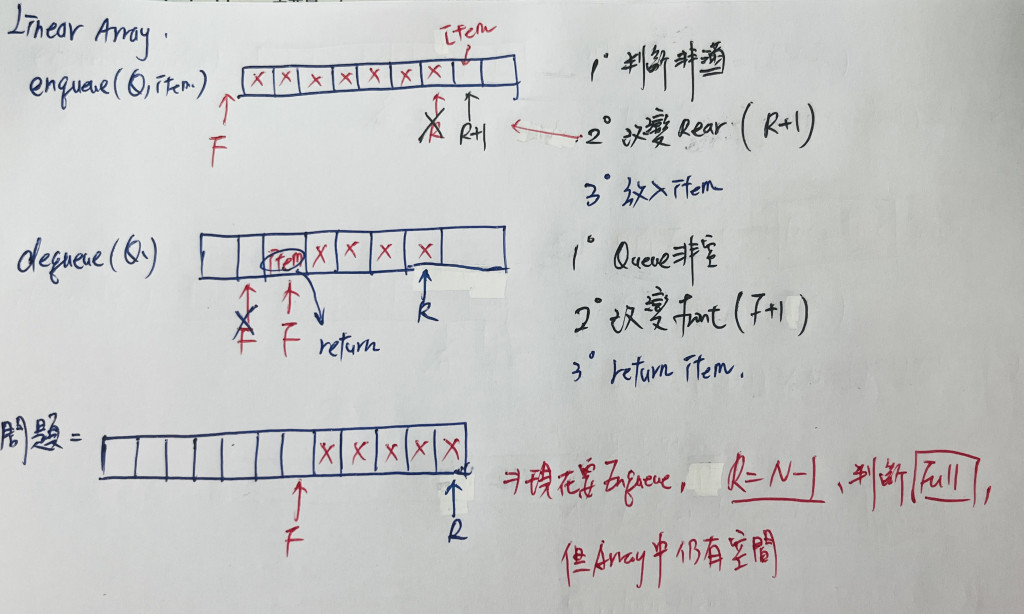 Linear Array.
enqueue(Q, item.)
Item
x x x x x x x
F
R R+1
1° 判斷非滿
2° 改變 Rear (R+1)
3° 放入 item
dequeue(Q.)
item x x x x
F F return
R
1° Queue非空
2° 改變 front (F+1)
3° return item.
問題=
x x x x x
F
R
⇒ 現在要 Enqueue, R=N-1、判斷 Full,
但Array中仍有空間